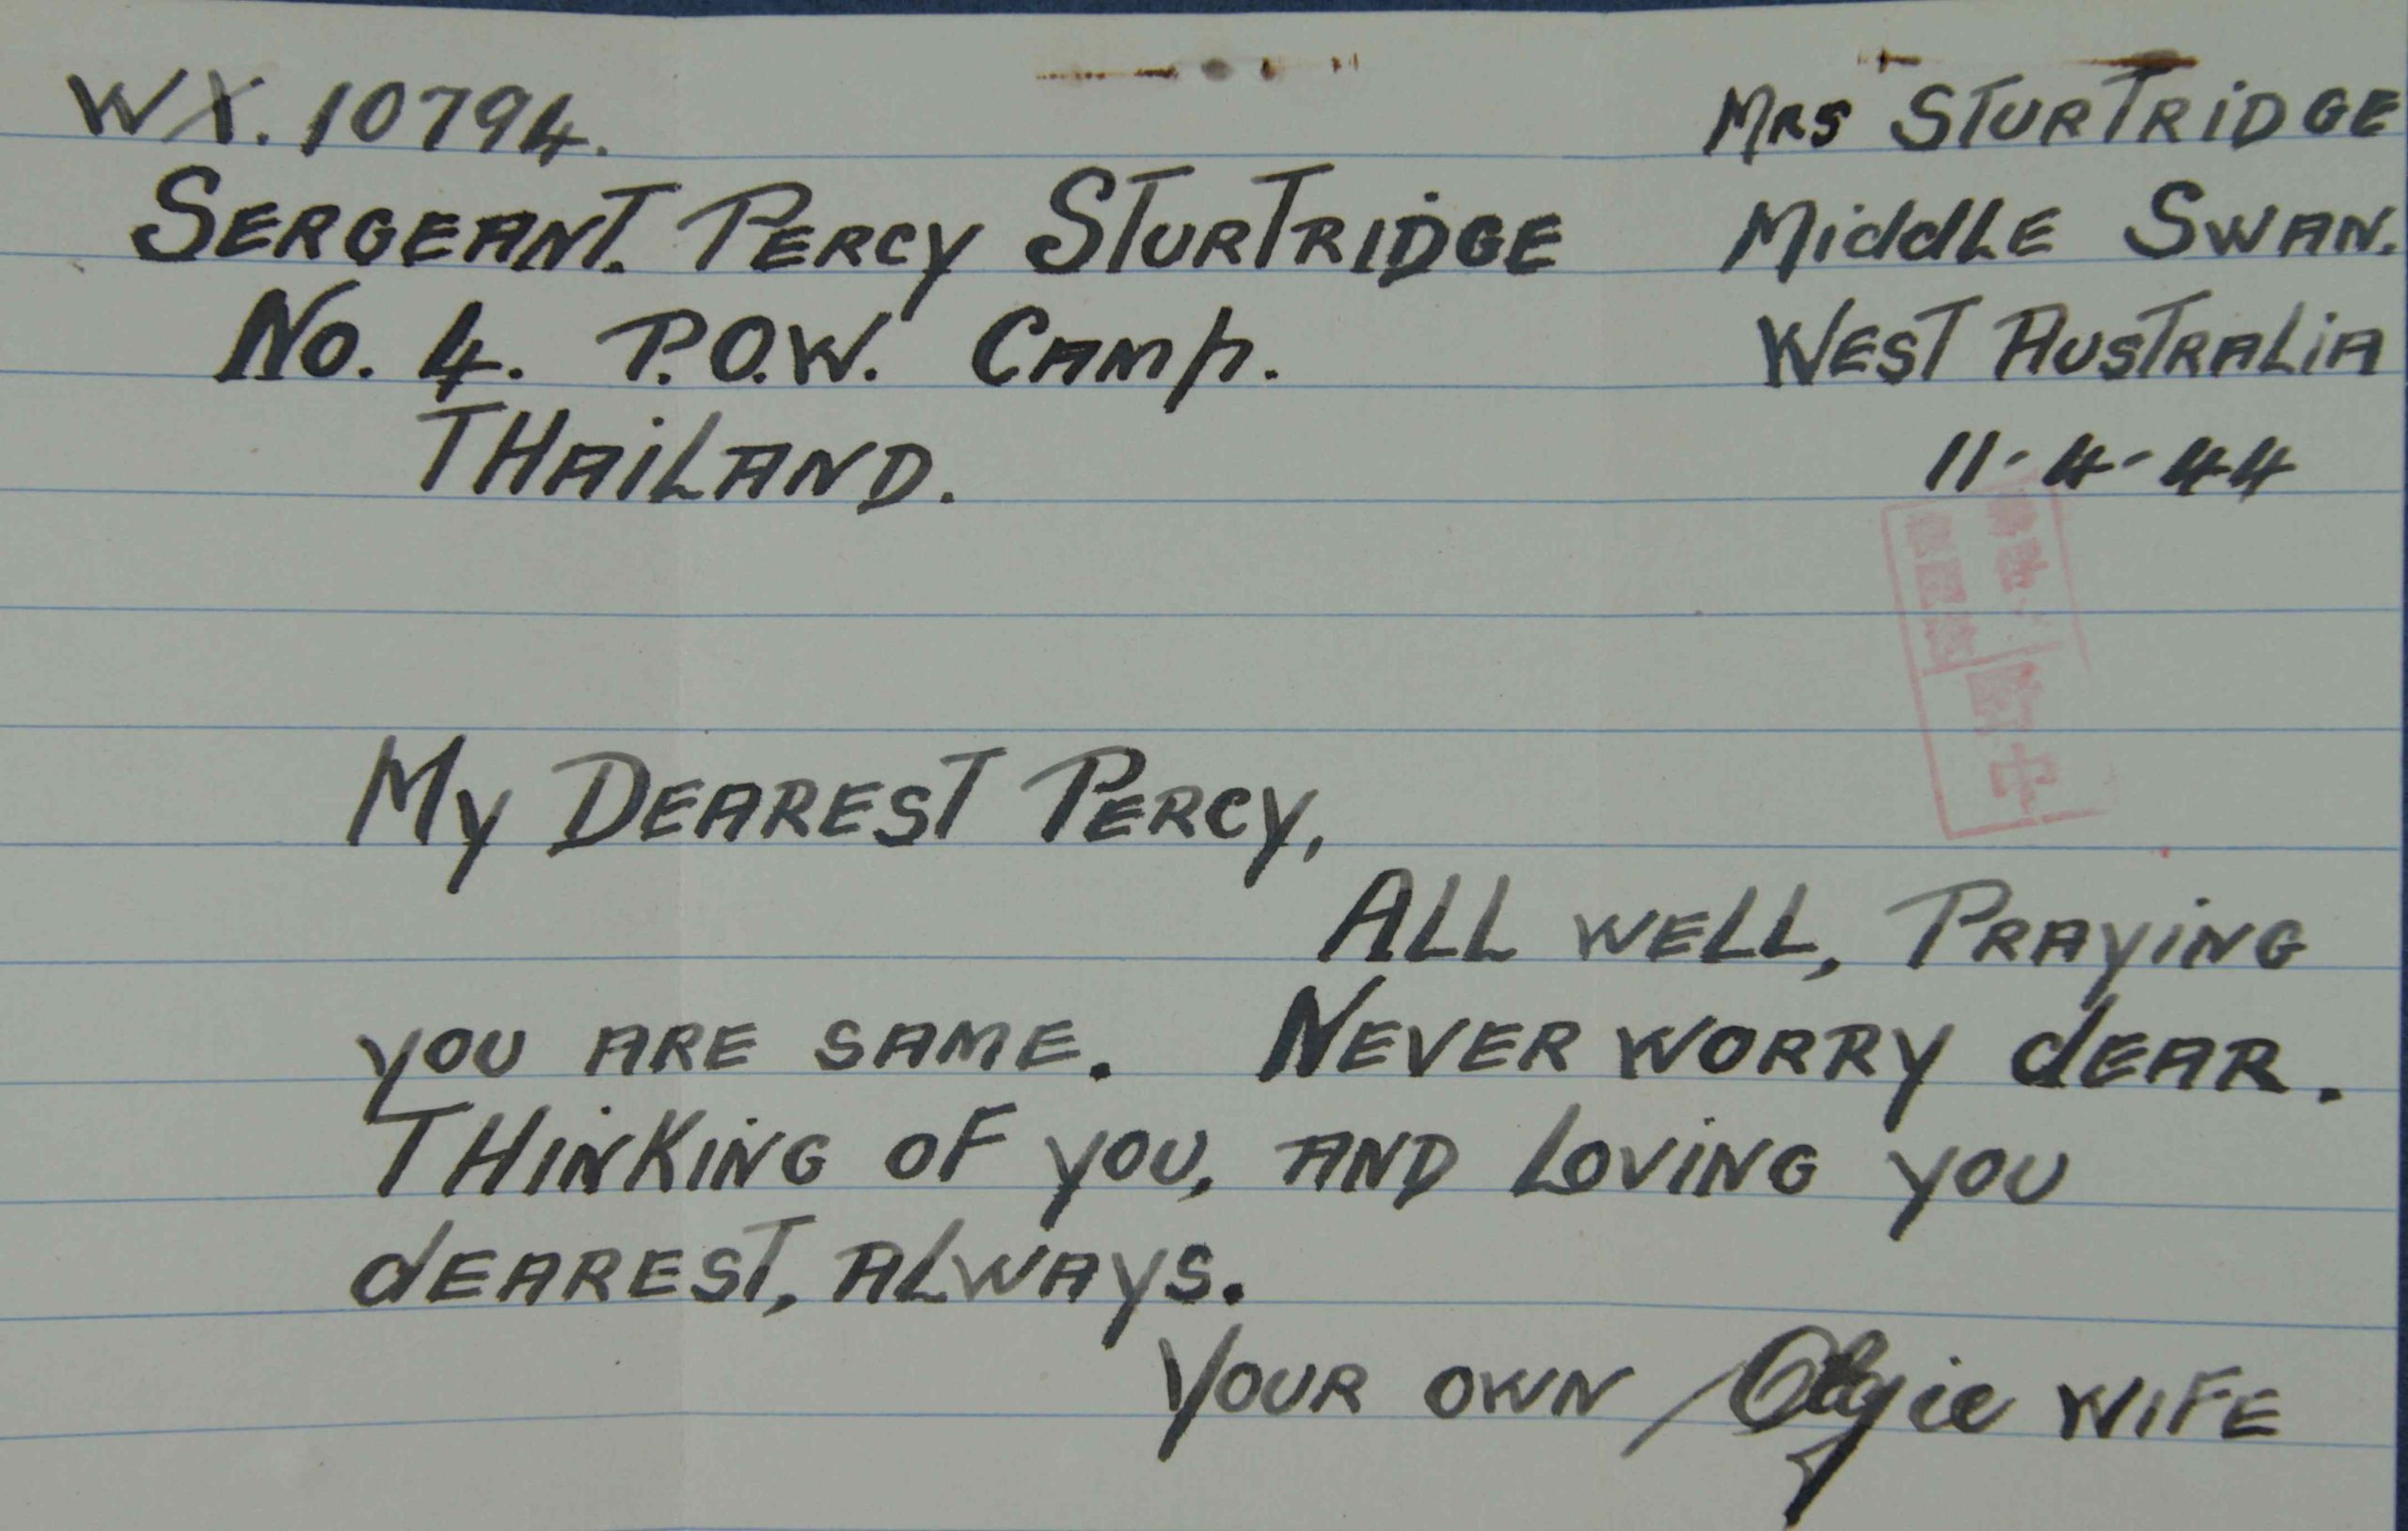 WX. 10794.
SERGEANT. PERCY STURTRIDGE
No. 4. P.O.W. CAMP.
THAILAND.
MRS STURTRIDGE
MiddLE SWAN.
WEST AUSTRALiA
11-4-44
My DEAREST PERCY,
ALL WELL, PRAYiNG
you ARE SAME. NEVER WORRY dEAR.
THiNKiNG OF you, AND LOViNG you
dEAREST, ALWAYS.
YOUR OWN Olgie WiFE